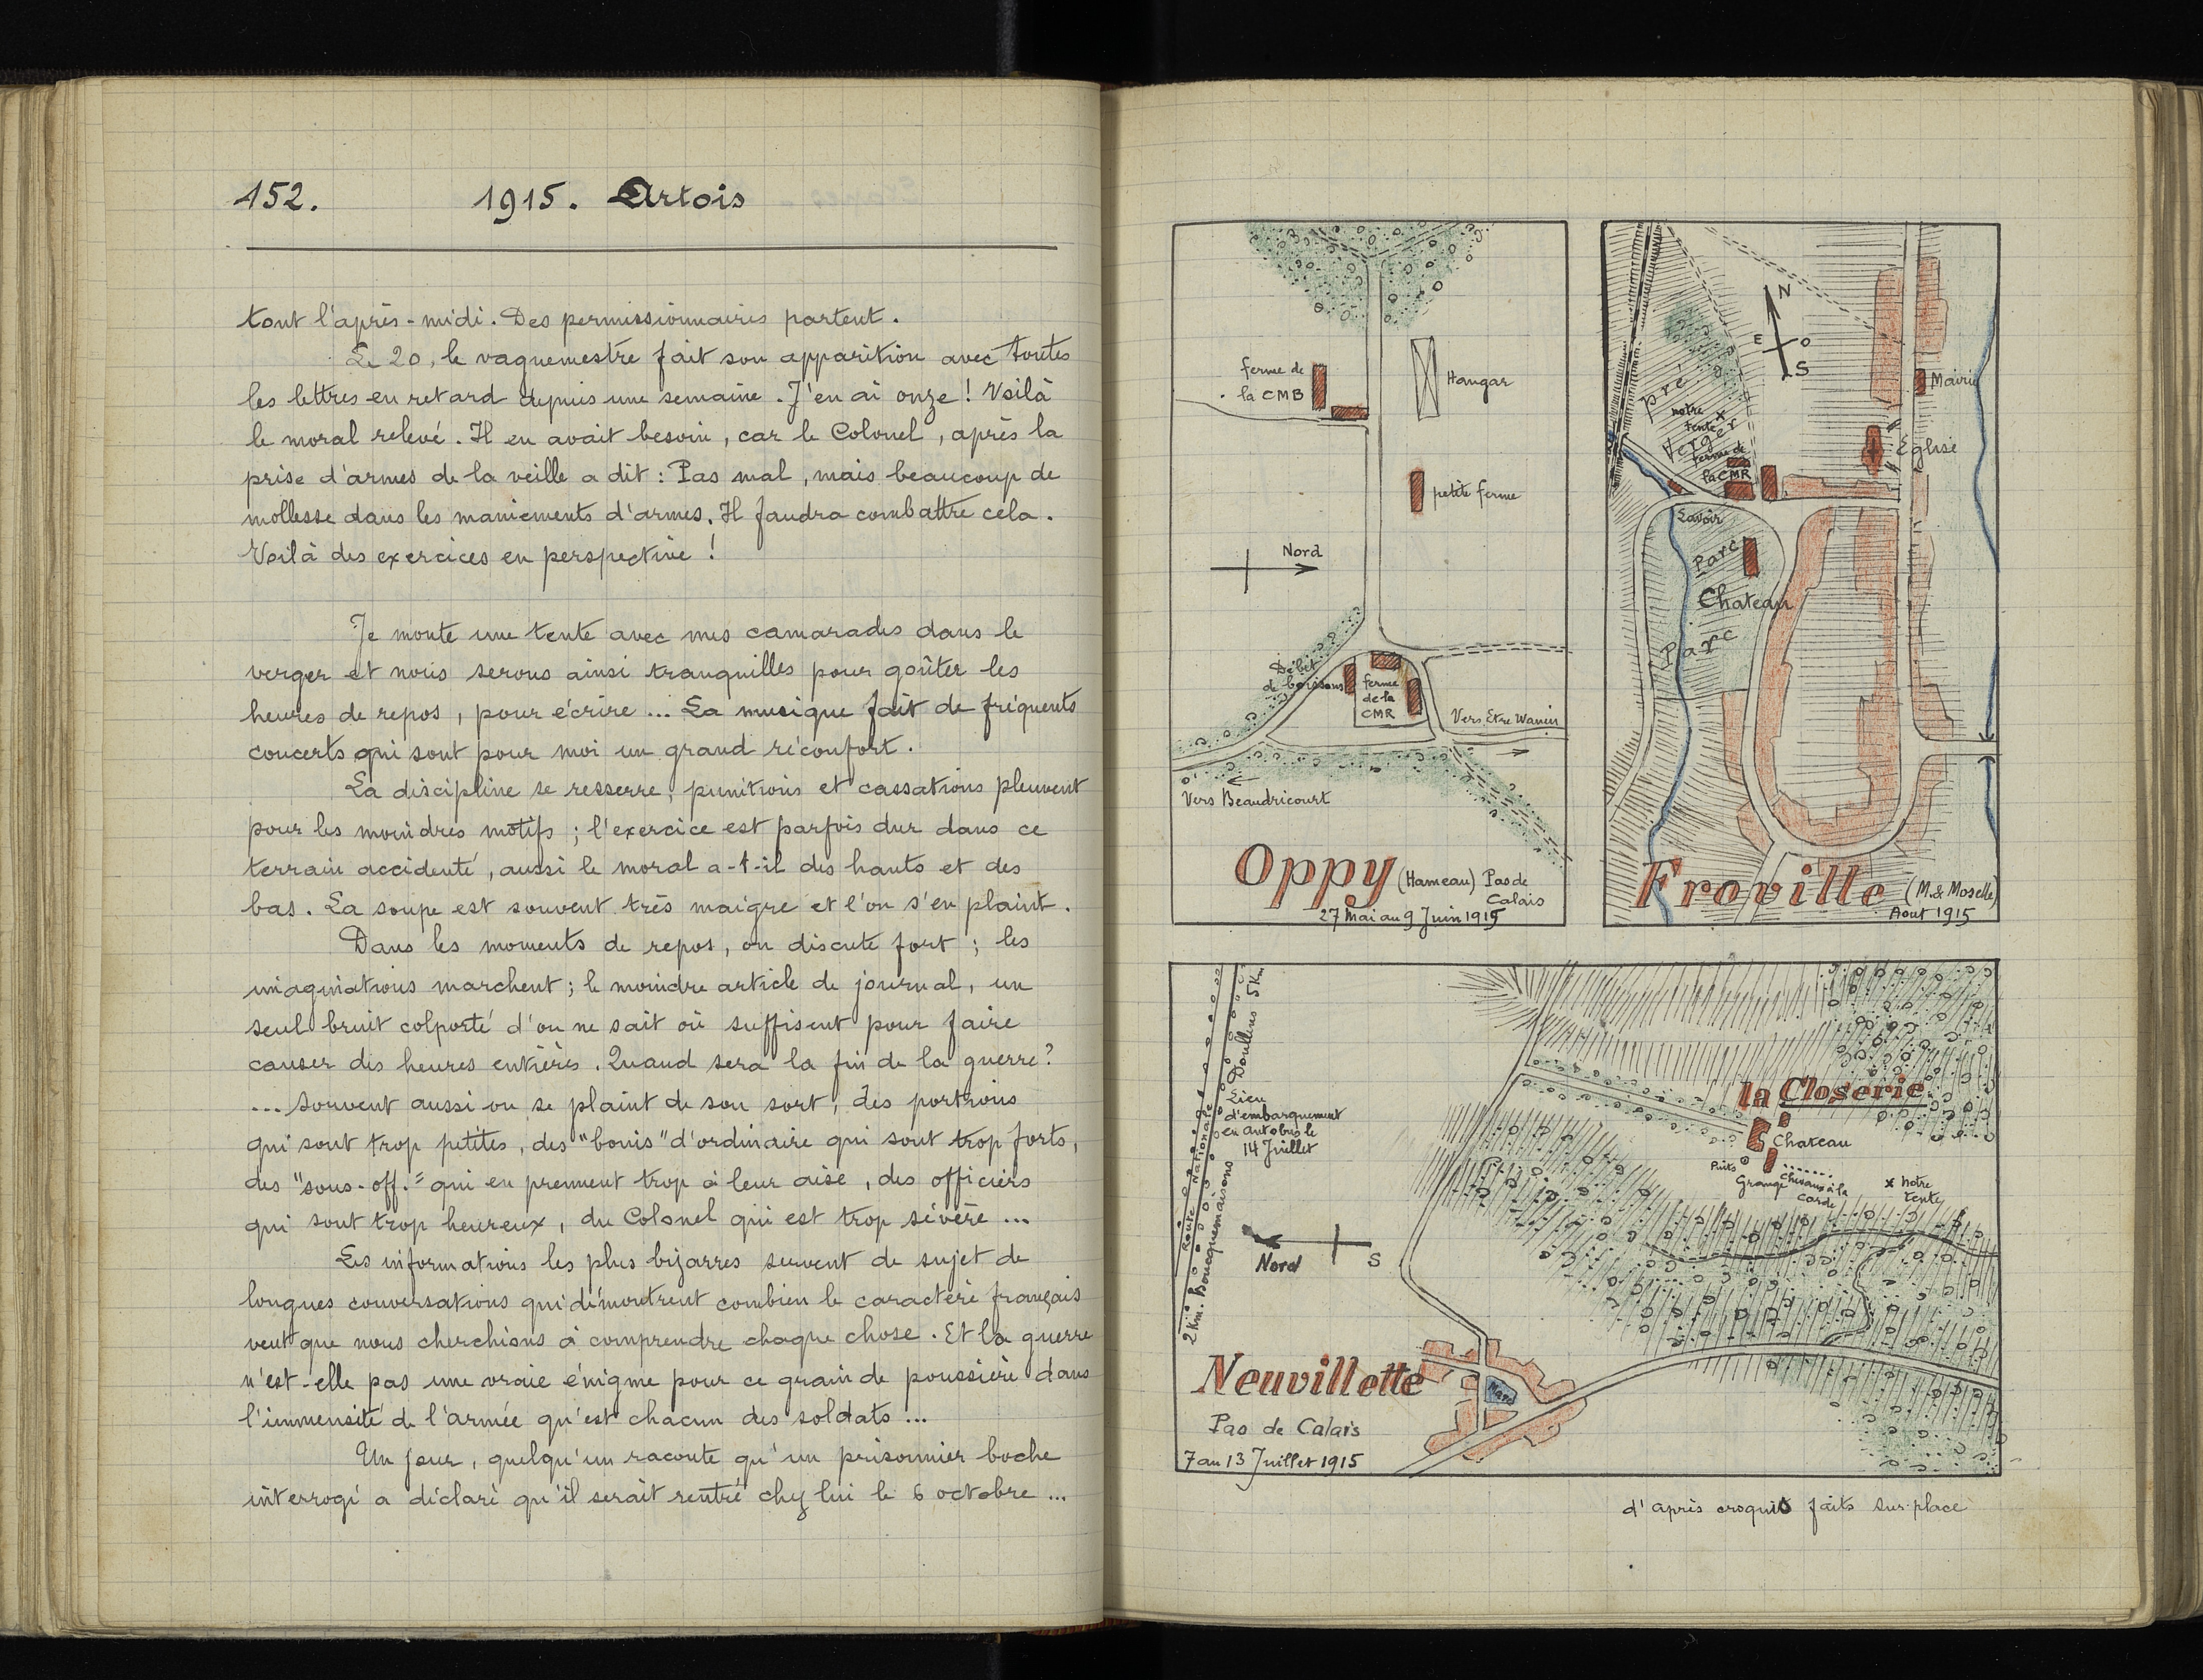 152.
1915. Artois
tout l'après-midi. Des permissionnaires partent.
Le 20, le vaguemestre fait son apparition avec toutes
les lettres en retard depuis une semaine. J'en ai onze! Voilà
le moral relevé. Il en avait besoin, car le Colonel, après la
prise d'armes de la veille a dit: Pas mal, mais beaucoup de
mollesse dans les maniements d'armes. Il faudra combattre cela.
Voilà des exercices en perspective!
Je monte une tente avec mes camarades dans le
verger et nous serons ainsi tranquilles pour goûter les
heures de repos, pour écrire... La musique fait de fréquents
concerts qui sont pour moi un grand réconfort.
La discipline se resserre, punitions et cassations pleuvent
pour les moindres motifs; l'exercice est parfois dur dans ce
terrain accidenté, aussi le moral a-t-il des hauts et des
bas. La soupe est souvent très maigre et l'on s'en plaint.
Dans les moments de repos, on discute fort; les
imaginations marchent; le moindre article de journal, un
seul bruit colporté d'on ne sait où suffisent pour faire
causer des heures entières. Quand sera la fin de la guerre?
... Souvent aussi on se plaint de son sort, des portions
qui sont trop petites, des "bonis" d'ordinaire qui sont trop forts,
des "sous-off." qui en prennent trop à leur aise, des officiers
qui sont trop heureux, du Colonel qui est trop sévère...
Les informations les plus bizarres servent de sujet de
longues conversations qui démontrent combien le caractère français
veut que nous cherchions à comprendre chaque chose. Et la guerre
n'est-elle pas une vraie énigme pour ce grain de poussière dans
l'immensité de l'armée qu'est chacun des soldats...
Un jour, quelqu'un raconte qu'un prisonnier boche
interrogé a déclaré qu'il serait rentré chez lui le 6 octobre...
ferme de
la CMB
Hangar
petite ferme
Nord
Débit
de boissons
ferme
de la
CMR
Vers Etre Wamin
Vers Beaudricourt
Oppy (Hameau) Pas de
Calais
27 Mai au 9 Juin 1915
N
E
O
S
Mairie
pré
notre
tente
Verger
ferme de
la CMR
Eglise
Lavoir
Parc
Chateau
Parc
Froville (M.& Moselle)
Aout 1915
Doullens 5 Km
Lieu
d'embarquement
en autobus le
14 Juillet
Route Nationale
2 Km. Bouquemaisons
Nord
S
la Closerie
Chateau
Puits
Grange
chevaux à la
corde
notre
tente
Mare
Neuvillette
Pas de Calais
7 au 13 Juillet 1915
d'après croquis faits sur place